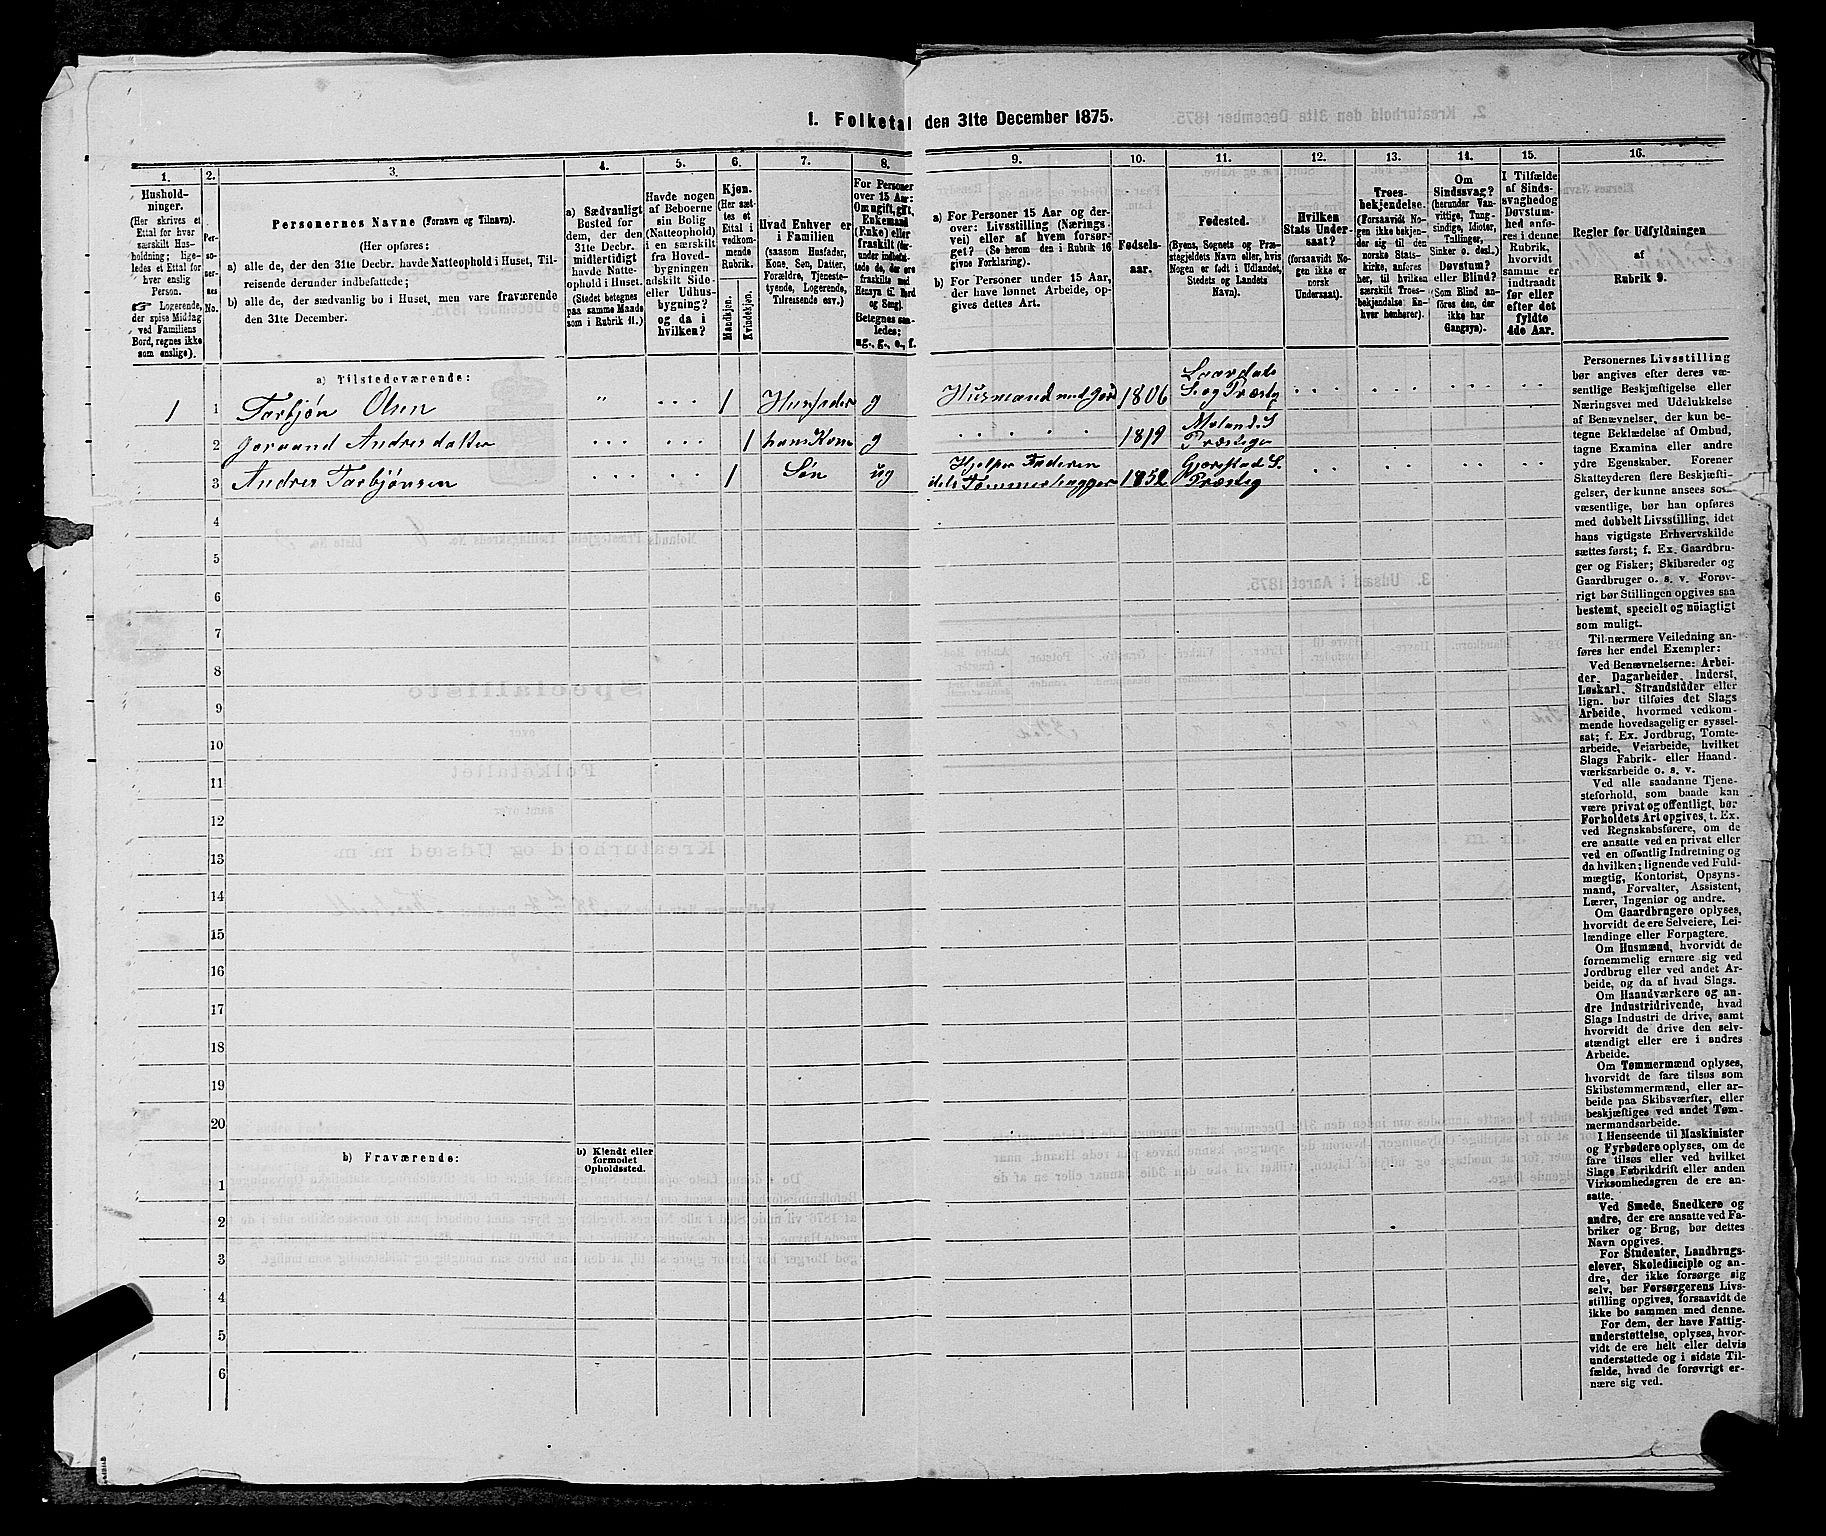 1. Folketal den 31te December 1875.
1.
2.
3.
4.
5.
6.
7.
8.
9.
10.
11.
12.
13.
14.
15.
16.
Hushold-
ninger.
(Her skrives et
Ettal for hver
særskilt Hus-
holdning; lige-
ledes et Ettal for
hver enslig
Person.
☞ Logerende,
der spise Middag
ved Familiens
Bord, regnes ikke
som enslige).
Per-
so-
ner-
nes
No.
Personernes Navne (Fornavn og Tilnavn).
(Her opføres:
a) alle de, der den 31te Decbr. havde Natteophold i Huset, Til-
reisende derunder indbefattede;
b) alle de, der sædvanlig bo i Huset, men vare fraværende
den 31te December.
a) Sædvanligt
Bosted for
dem, der den
31te Decbr.
midlertidigt
havde Natte-
ophold i Huset.
(Stedet betegnes
paa samme Maade
som i Rubrik 11.)
Havde nogen
af Beboerne
sin Bolig
(Natteophold)
i en særskilt
fra Hoved-
bygningen
adskilt Side-
eller Udhus-
bygning?
og da i
hvilken?
Kjøn.
(Her sæt-
tes et
Ettal i
vedkom-
mende
Rubrik.
Mandkjøn.
Kvindekjøn.
Hvad Enhver er
i Familien
(saasom Husfader,
Kone, Søn, Datter,
Forældre, Tjeneste-
tyende, Logerende,
Tilreisende osv.)
For Personer
over 15 Aar:
Om ugift, gift,
Enkemand
(Enke) eller
fraskilt (her-
under indbefat-
tede de, der ere
fraskilte med
Hensyn til Bord
og Seng).
Betegnes saa-
ledes:
ug., g., e., f.
a) For Personer 15 Aar og der-
over: Livsstilling (Nærings-
vei) eller af hvem forsør-
get? (Se herom den i Rubrik 16
givne Forklaring).
b) For Personer under 15 Aar,
der have lønnet Arbeide, op-
gives dettes Art.
Fødsels-
aar.
Fødested.
(Byens, Sognets og Præ-
stegjeldets Navn eller, hvis
Nogen er født i Udlandet,
Stedets og Landets
Navn).
Hvilken
Stats Under-
saat?
(forsaavidt No-
gen ikke er
norsk
Undersaat).
Troes-
bekjendelse.
(Forsaavidt No-
gen ikke bekjen-
der sig til den
norske Stats-
kirke, anføres
her, til hvilken
særskilt Troes-
bekjendelse En-
hver henhører).
Om
Sindssvag?
(herunder Van-
vittige, Tung-
sindige, Idioter,
Tullinger,
Sinker o. desl.)
Døvstum?
eller Blind?
(Som Blind an-
føres den, der
ikke har
Gangsyn).
I Tilfælde
af Sinds-
svaghed og
Døvstum-
hed anfø-
res i denne
Rubrik,
hvorvidt
samme er
indtraadt
før eller
efter det
fyldte
4de Aar.
Regler for Udfyldningen
af
Rubrik 9.
a) Tilstedeværende:
1 1 Tarbjøn Olsen " 1 Husfader g Husmand med Jord 1806 Laardals Sog Præstg
2 Joraand Andresdatter 1 hans Kone g 1819 Molands S. Præstegj
3 Andres Tarbjønsen 1 Søn ug Hjelper Faderen
dels Tømmerhugger 1852 Gjerestad S. Præsteg
4
5
6
7
8
9
10
11
12
13
14
15
16
17
18
19
20
b) Fraværende:
b) Kjendt eller
formodet
Opholdssted.
1
2
3
4
5
6
Personernes Livsstilling
bør angives efter deres væ-
sentlige Beskjæftigelse eller
Næringsvei med Udelukkelse
af Benævnelser, der kun be-
tegne Beklædelse af Ombud,
tagne Examina eller andre
ydre Egenskaber. Forener
Skatteyderen flere Beskjæfti-
gelser, der kunne ansees som
væsentlige, bør han opføres
med dobbelt Livsstilling, idet
hans vigtigste Erhvervskilde
sættes først; f. Ex. Gaardbru-
ger og Fisker; Skibsreder og
Gaardbruger o. s. v. Forøv-
rigt bør Stillingen opgives saa
bestemt, specielt og nøiagtigt
som muligt.
Til nærmere Veiledning an-
føres her endel Exempler:
Ved Benævnelserne: Arbei-
der, Dagarbeider, Inderst,
Løskarl, Strandsidder eller
lign. bør tilføies det Slags
Arbeide, hvormed vedkom-
mende hovedsagelig er syssel-
sat; f. Ex. Jordbrug, Tomte-
arbeide, Veiarbeide, hvilket
Slags Fabrik- eller Haand-
værksarbeide o. s. v.
Ved alle saadanne Tjene-
steforhold, som baade kan
være privat og offentligt, bør
Forholdets Art opgives, t. Ex.
ved Regnskabsførere, om de
ere ansatte ved en privat eller
ved en offentlig Indretning og
da hvilken; lignende ved Fuld-
mægtig, Kontorist, Opsyns-
mand, Forvalter, Assistent,
Lærer, Ingeniør og andre.
Om Gaardbrugere oplyses,
hvorvidt de ere Selveiere, Lei-
lændinge eller Forpagtere.
Om Husmænd, hvorvidt de
fornemmelig ernære sig ved
Jordbrug eller ved andet Ar-
beide, og da af hvad Slags.
Om Haandværkere og an-
dre Industridrivende, hvad
Slags Industri de drive, samt
hvorvidt de drive den selv-
stændigt eller ere i andres
Arbeide.
Om Tømmermænd oplyses,
hvorvidt de fare tilsøs som
Skibstømmermænd, eller ar-
beide paa Skibsværfter, eller
beskjæftiges ved andet Tøm-
mermandsarbeide.
I Henseende til Maskinister
og Fyrbødere oplyses, om de
fare tilsøs eller ved hvilket
Slags Fabrikdrift eller anden
Virksomhedsgren de ere an-
satte.
Ved Smede, Snedkere og
andre, der ere ansatte ved Fa-
briker og Brug, bør dettes
Navn opgives.
For Studenter, Landbrugs-
elever, Skoledisciple og an-
dre, der ikke forsørge sig
selv, bør Forsørgerens Livs-
stilling opgives, forsaavidt de
ikke bo sammen med denne.
For dem, der have Fattig-
understøttelse, oplyses, hvor-
vidt de ere helt eller delvis
understøttede og i sidste Til-
fælde, hvad de forøvrigt er-
nære sig ved.